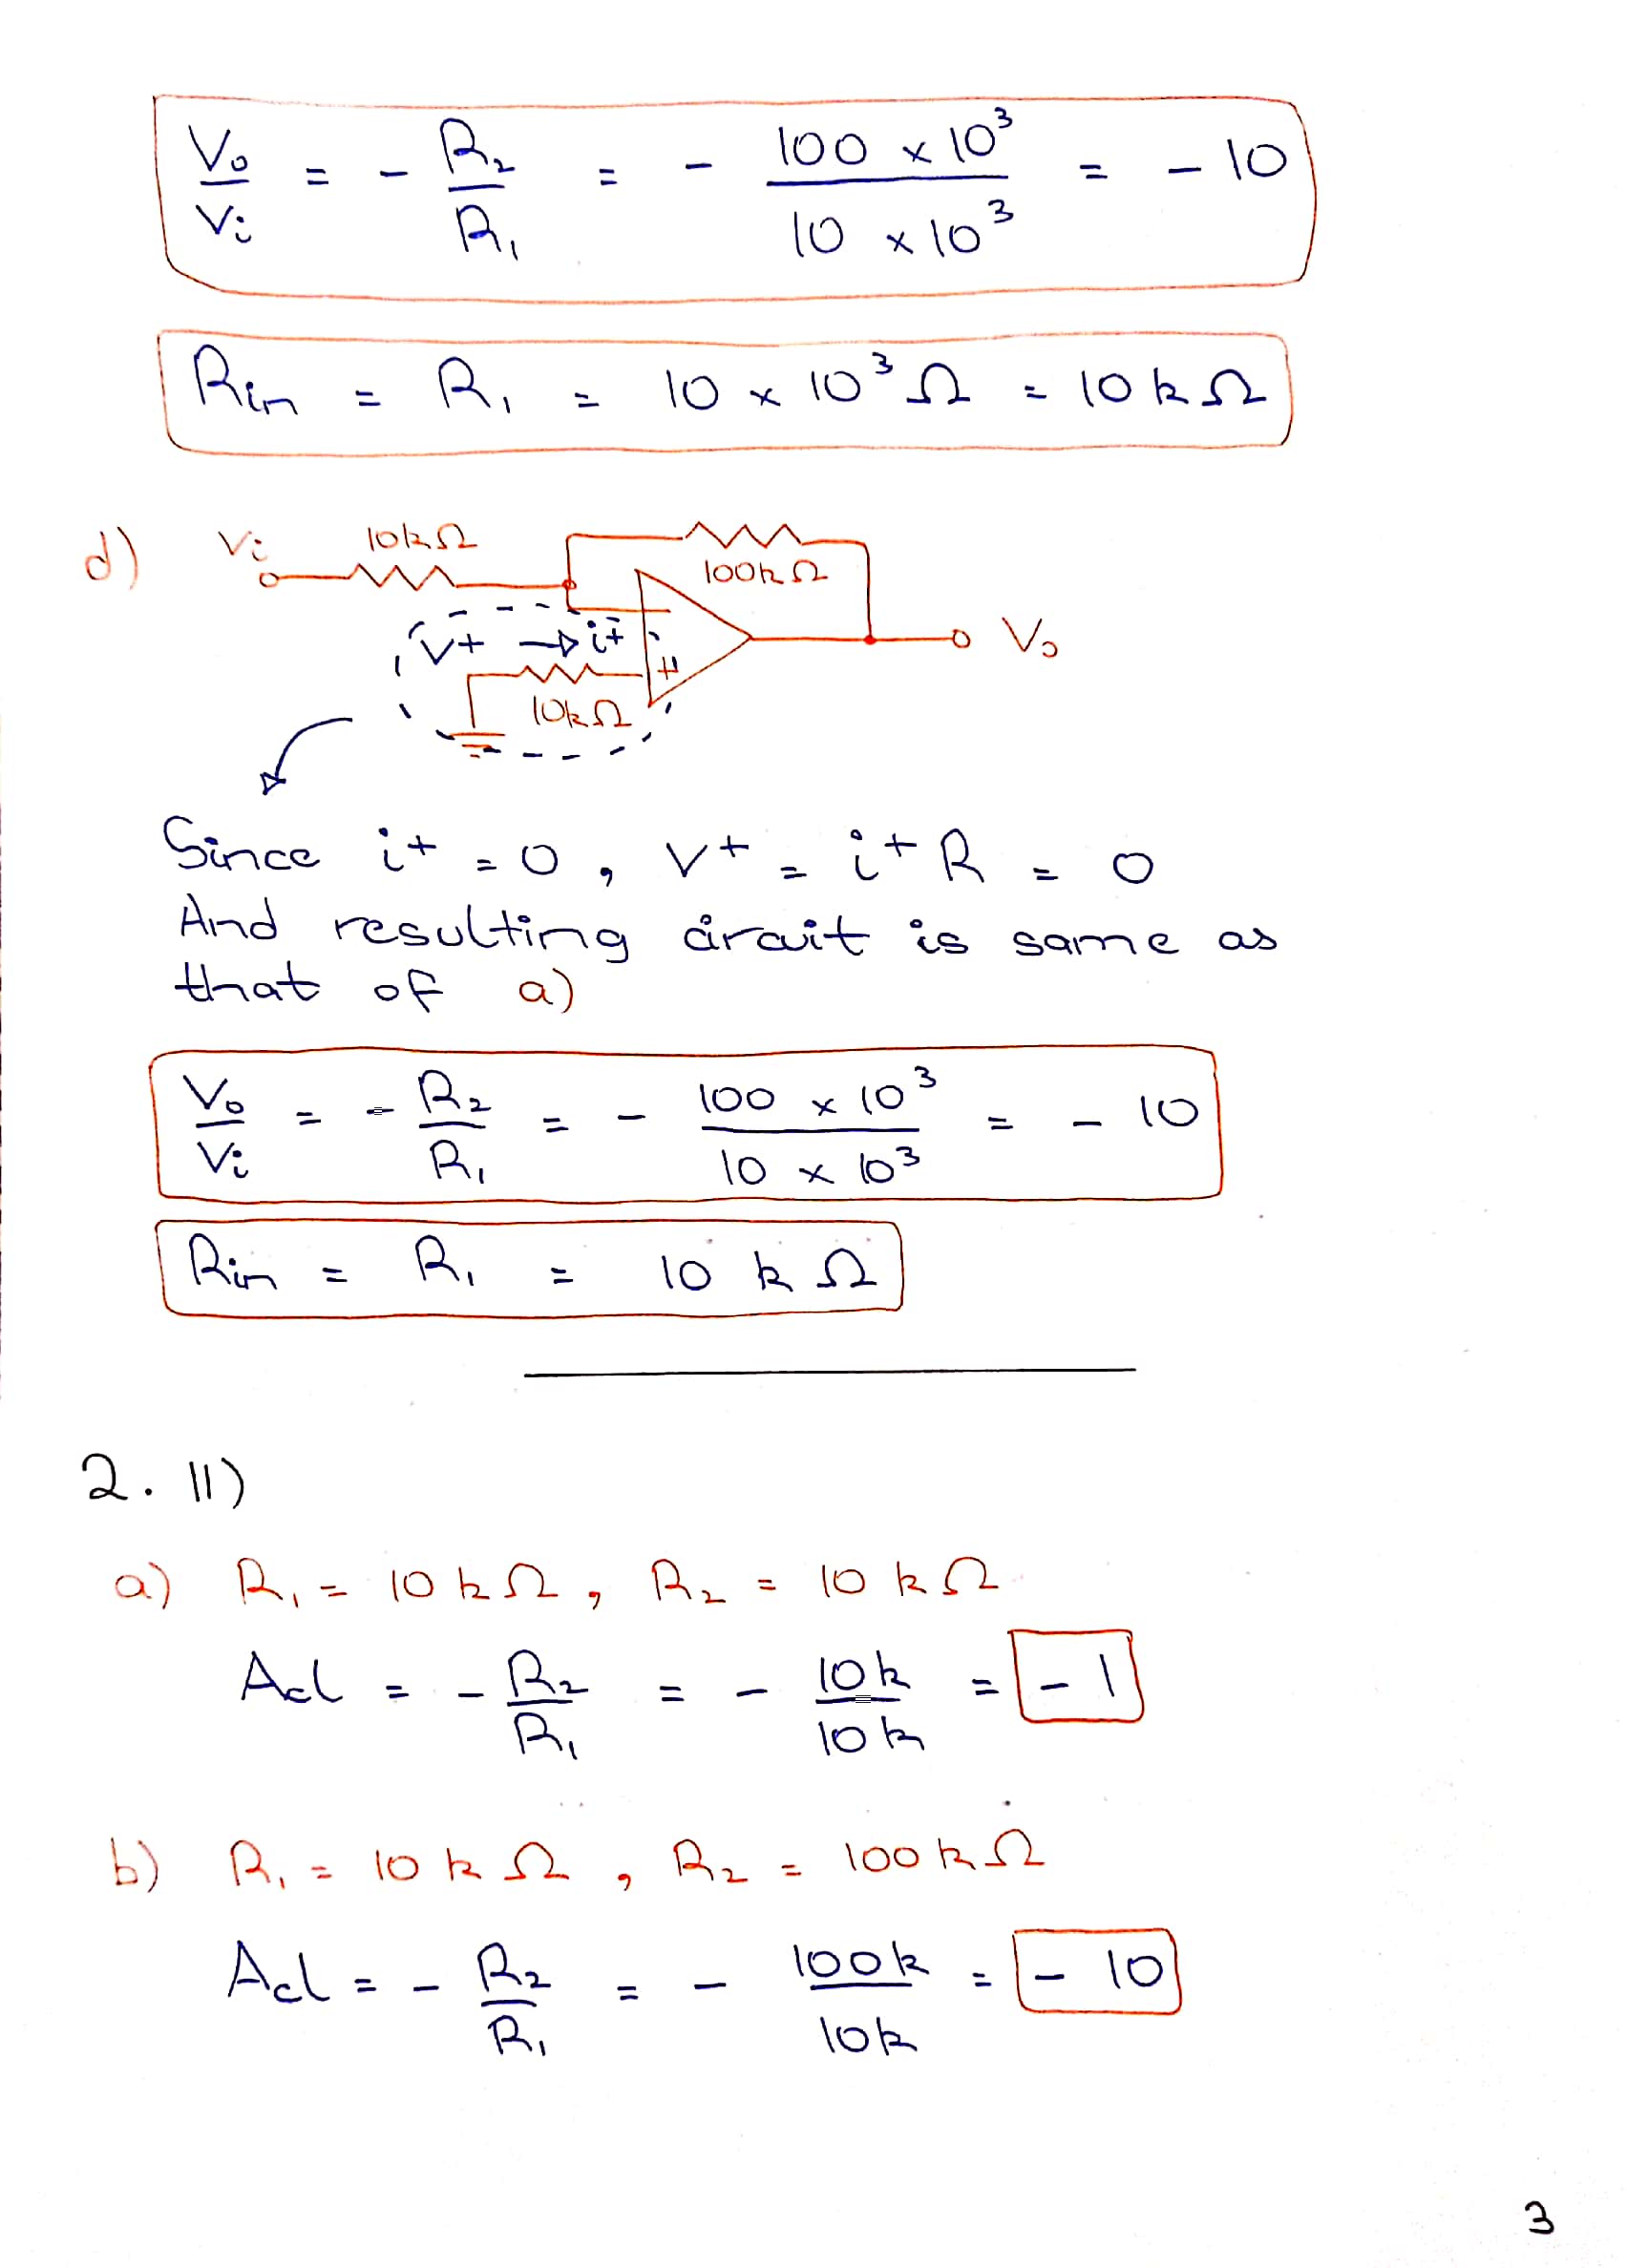 Vo/Vi = - R₂/R₁ = - 100 × 10³ / 10 × 10³ = - 10
Rin = R₁ = 10 × 10³ Ω = 10 kΩ
d) Vi 10kΩ 100kΩ
V+ → i+ Vo
10kΩ
Since i+ = 0, V+ = i+ R = 0
And resulting circuit is same as
that of a)
Vo/Vi = - R₂/R₁ = - 100 × 10³ / 10 × 10³ = - 10
Rin = R₁ = 10 kΩ
2.11)
a) R₁ = 10 kΩ, R₂ = 10 kΩ
Acl = - R₂/R₁ = - 10k/10k = - 1
b) R₁ = 10 kΩ, R₂ = 100 kΩ
Acl = - R₂/R₁ = - 100k/10k = - 10
3